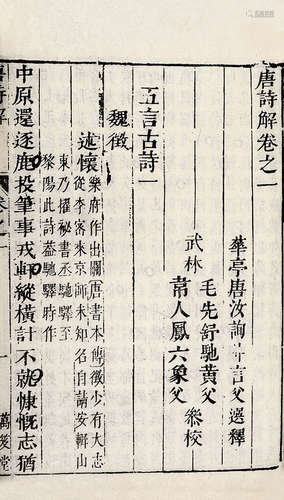 唐詩解卷之一
華亭唐汝詢十言父選釋
毛先舒馳黃父
武林
常人鳳六象父
叅校
五言古詩一
魏徵
述懷
樂府作出關唐書本傳徵少有大志
從李密來京師未知名自請安輯山
東乃擢秘書丞馳驛至
黎陽此詩葢馳驛時作
中原還逐鹿投筆事戎軒縱橫計不就慷慨志猶
唐詩解
卷之一
一
萬笈堂